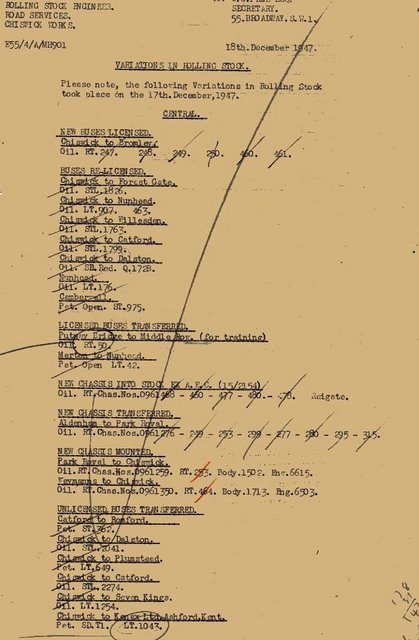 ROLLING STOCK ENGINEER.
ROAD SERVICES.
CHISWICK WORKS.
SECRETARY.
55.BROADWAY.S.W.1.
E55/4/A/MH901
18th.December 1947.
VARIATIONS IN ROLLING STOCK.
Please note, the following Variations in Rolling Stock
took place on the 17th.December,1947.
CENTRAL.
NEW BUSES LICENSED.
Chiswick to Bromley.
Oil. RT.247. 248. 249. 250. 461.
BUSES RE-LICENSED.
Chiswick to Forest Gate.
Oil. STL.1826.
Chiswick to Nunhead.
Oil. LT.907. 463.
Chiswick to Willesden.
Oil. STL.1763.
Chiswick to Catford.
Oil. STL.1799.
Chiswick to Dalston.
Oil. SB.Red. Q.172B.
Nunhead.
Oil. LT.176.
Camberwell.
Pet. Open. ST.975.
LICENSED BUSES TRANSFERRED.
Putney Bridge to Middle Row. (for training)
Oil. RT.59.
Merton to Nunhead.
Pet. Open LT.42.
NEW CHASSIS INTO STOCK EX A.E.C. (15/2154)
Oil. RT.Chas.Nos.0961468 - 460 - 477 - 480 - 478. Reigate.
NEW CHASSIS TRANSFERRED.
Aldenham to Park Royal.
Oil. RT.Chas.Nos.0961276 - 249 - 253 - 299 - 277 - 280 - 295 - 315.
NEW CHASSIS MOUNTED.
Park Royal to Chiswick.
Oil.RT.Chas.Nos.0961259. RT.253. Body.1502. Eng.6615.
Weymanns to Chiswick.
Oil. RT.Chas.Nos.0961350. RT.464. Body.1713. Eng.6503.
UNLICENSED BUSES TRANSFERRED.
Catford to Romford.
Pet. ST.262.
Chiswick to Dalston.
Oil. STL.2041.
Chiswick to Plumstead.
Pet. LT.649.
Chiswick to Catford.
Oil. STL.2274.
Chiswick to Seven Kings.
Oil. LT.1254.
Chiswick to Kenex Ltd.Ashford.Kent.
Pet. SD.T1. LT.1043.